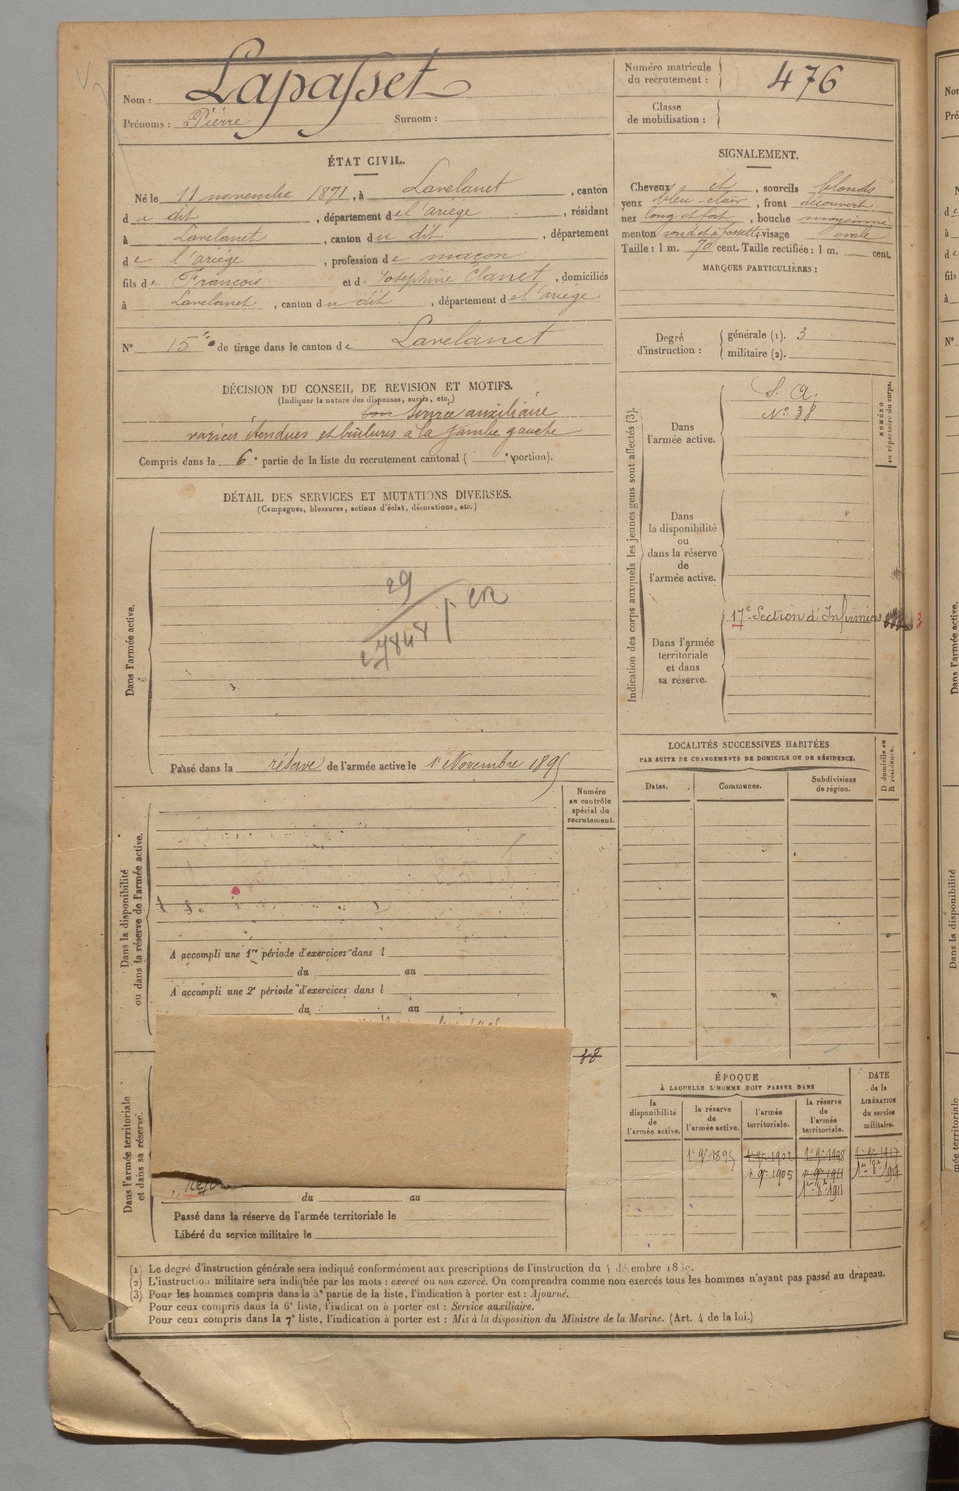 Nom : Lapasset
Prénoms : Pierre Surnom :
Numéro matricule du recrutement : 476
Classe de mobilisation :
ÉTAT CIVIL.
Né le 11 novembre 1871, à Lavelanet, canton
du dit, département de l'ariège, résidant
à Lavelanet, canton du dit, département
de l'ariége, profession de maçon
fils de François et de Josephine Clanet, domiciliés
à Lavelanet, canton du dit, département de l'ariège
N° 15 de tirage dans le canton de Lavelanet
SIGNALEMENT.
Cheveux et, sourcils blonds
yeux bleu-clair, front découvert
nez long et fort, bouche moyenne
menton rond et à fossette, visage ovale
Taille : 1 m. 70 cent. Taille rectifiée : 1 m. cent.
MARQUES PARTICULIÈRES :
Degré d'instruction : générale (1). 3
militaire (2).
DÉCISION DU CONSEIL DE REVISION ET MOTIFS.
(Indiquer la nature des dispenses, sursis, etc.)
bon Service auxiliaire
varices étendues et brûlures à la jambe gauche
Compris dans la 6e partie de la liste du recrutement cantonal ( e portion).
DÉTAIL DES SERVICES ET MUTATIONS DIVERSES.
(Campagnes, blessures, actions d'éclat, décorations, etc.)
Dans l'armée active.
29
Passé dans la réserve de l'armée active le 1 Novembre 1895
Indication des corps auxquels les jeunes gens sont affectés (3).
NUMÉRO au répertoire du corps.
Dans l'armée active.
S. A.
N° 38
Dans la disponibilité ou dans la réserve de l'armée active.
Dans l'armée territoriale et dans sa réserve.
17e Section d'Infirmiers
Dans la disponibilité ou dans la réserve de l'armée active.
Numéro au contrôle spécial du recrutement.
A accompli une 1re période d'exercices dans l
du au
A accompli une 2e période d'exercices dans l
du au
38
LOCALITÉS SUCCESSIVES HABITÉES
PAR SUITE DE CHANGEMENTS DE DOMICILE OU DE RÉSIDENCE.
Dates. Communes. Subdivisions de région. D domicile ou R résidence.
Dans l'armée territoriale et dans sa réserve.
du au
Passé dans la réserve de l'armée territoriale le
Libéré du service militaire le
ÉPOQUE
À LAQUELLE L'HOMME DOIT PASSER DANS
la disponibilité de l'armée active. la réserve de l'armée active. l'armée territoriale. la réserve de l'armée territoriale. DATE de la LIBÉRATION du service militaire.
1er 9bre 1895 1er 9bre 1902 1er 9bre 1908 1er 9bre 1917
1er 9bre 1905 1er 9bre 1911 1er 8bre 1917
1er 8bre 1911
(1) Le degré d'instruction générale sera indiqué conformément aux prescriptions de l'instruction du 4 décembre 1889.
(2) L'instruction militaire sera indiquée par les mots : exercé ou non exercé. On comprendra comme non exercés tous les hommes n'ayant pas passé au drapeau.
(3) Pour les hommes compris dans la 5e partie de la liste, l'indication à porter est : Ajourné.
Pour ceux compris dans la 6e liste, l'indication à porter est : Service auxiliaire.
Pour ceux compris dans la 7e liste, l'indication à porter est : Mis à la disposition du Ministre de la Marine. (Art. 4 de la loi.)